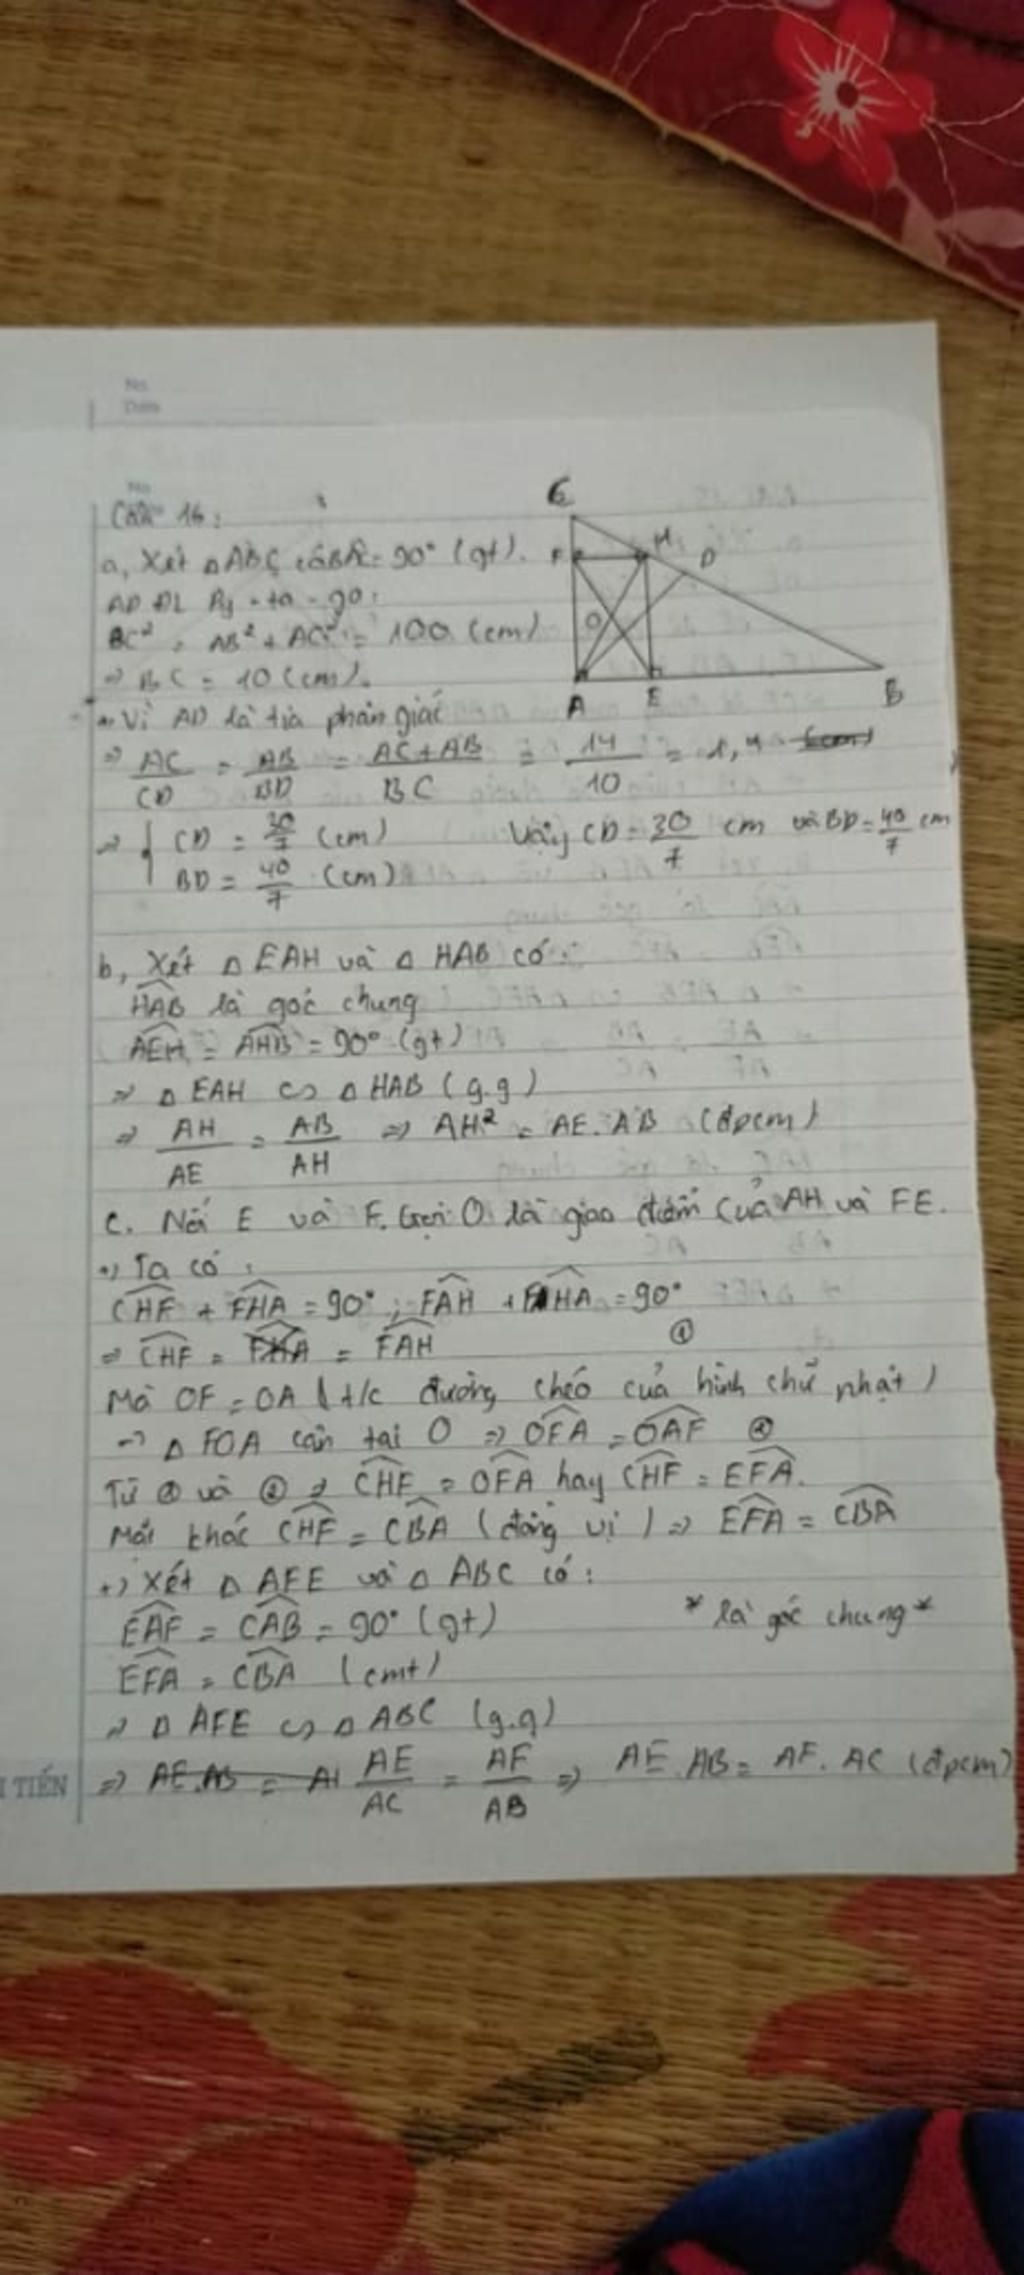 No.
Date
No
Câu 16:
C
F
H
D
O
A
E
B
a, Xét △ABC có BAC = 90° (gt).
AD ĐL Py-ta-go:
BC² = AB² + AC² = 100 (cm)
⇒ BC = 10 (cm).
Vì AD là tia phân giác
⇒ AC/CD = AB/BD = AC+AB/BC = 14/10 = 1,4
⇒ { CD = 30/7 (cm) Vậy CD = 30/7 cm và BD = 40/7 cm
BD = 40/7 (cm)
b, Xét △ EAH và △ HAB có:
HAB là góc chung
AEH = AHB = 90° (gt)
⇒ △ EAH ∽ △ HAB (g.g)
⇒ AH/AE = AB/AH ⇒ AH² = AE.AB (đpcm)
c. Nối E và F. Gọi O là giao điểm của AH và FE.
+) Ta có:
CHF + FHA = 90°; FAH + FHA = 90°
⇒ CHF = FAH ①
Mà OF = OA (t/c đường chéo của hình chữ nhật)
⇒ △ FOA cân tại O ⇒ OFA = OAF ②
Từ ① và ② ⇒ CHF = OFA hay CHF = EFA.
Mặt khác CHF = CBA (đồng vị) ⇒ EFA = CBA
+) Xét △ AFE và △ ABC có:
EAF = CAB = 90° (gt) * là góc chung *
EFA = CBA (cmt)
⇒ △ AFE ∽ △ ABC (g.g)
⇒ AE/AC = AF/AB ⇒ AE.AB = AF.AC (đpcm)
TIẾN